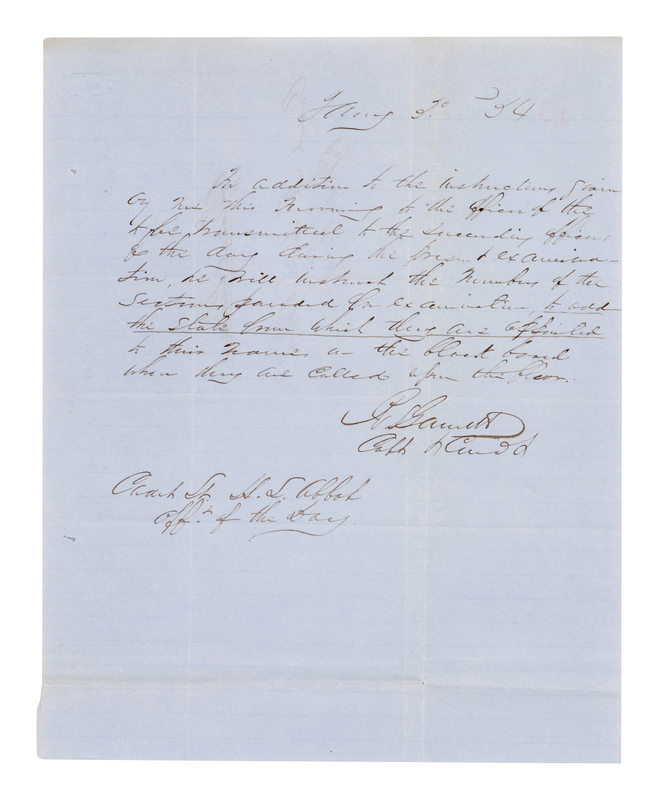 Jany 3d 54
In addition to the instructions given
by me this Morning to the officer of the
to be transmitted to the succeeding officers
of the day during the present examina-
tion, he will instruct the Members of the
Sections paraded for examination, to add
the State from which they are appointed
to their Names on the black board
when they are called upon the floor.
R S Garnett
Capt & Comdt
Cadet Lt. H. L. Abbot
Offr. of the Day.